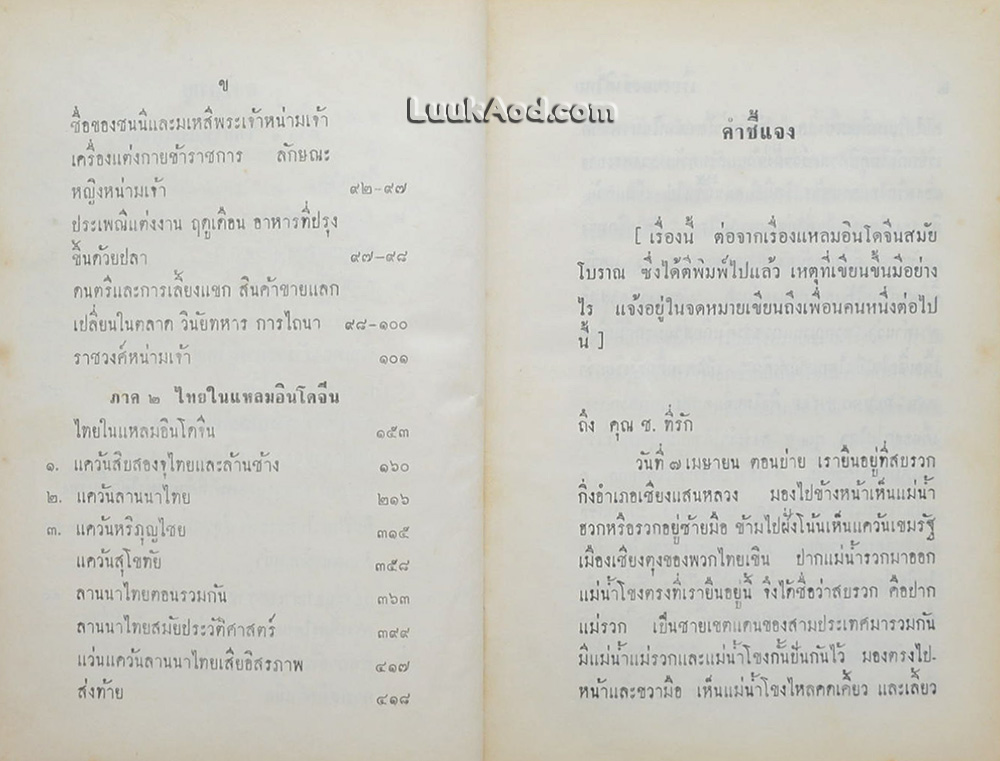 LuukAod.com
ข
ชื่อของชนนีและมเหสีพระเจ้าหน่ามเจ้า
เครื่องแต่งกายข้าราชการ ลักษณะ
หญิงหน่ามเจ้า ๙๒-๙๗
ประเพณีแต่งงาน ฤดูเดือน อาหารที่ปรุง
ขึ้นด้วยปลา ๙๗-๙๘
ดนตรีและการเลี้ยงแขก สินค้าขายแลก
เปลี่ยนในตลาด วินัยทหาร การไถนา ๙๘-๑๐๐
ราชวงศ์หน่ามเจ้า ๑๐๑
ภาค ๒ ไทยในแหลมอินโดจีน
ไทยในแหลมอินโดจีน ๑๕๓
๑. แคว้นสิบสองจุไทยและล้านช้าง ๑๖๐
๒. แคว้นลานนาไทย ๒๑๖
๓. แคว้นหริภุญไชย ๓๑๕
แคว้นสุโขทัย ๓๕๘
ลานนาไทยตอนรวมกัน ๓๖๓
ลานนาไทยสมัยประวัติศาสตร์ ๓๙๙
แว่นแคว้นลานนาไทยเสียอิสรภาพ ๔๑๗
ส่งท้าย ๔๑๘
คำชี้แจง
[ เรื่องนี้ ต่อจากเรื่องแหลมอินโดจีนสมัย
โบราณ ซึ่งได้ตีพิมพ์ไปแล้ว เหตุที่เขียนขึ้นมีอย่าง
ไร แจ้งอยู่ในจดหมายเขียนถึงเพื่อนคนหนึ่งต่อไป
นี้ ]
ถึง คุณ ช. ที่รัก
วันที่ ๗ เมษายน ตอนบ่าย เรายืนอยู่ที่สบรวก
กิ่งอำเภอเชียงแสนหลวง มองไปข้างหน้าเห็นแม่น้ำ
ฮวกหรือรวกอยู่ซ้ายมือ ข้ามไปฝั่งโน้นเห็นแคว้นเขมรัฐ
เมืองเชียงตุงของพวกไทยเขิน ปากแม่น้ำรวกมาออก
แม่น้ำโขงตรงที่เรายืนอยู่นี้ จึงได้ชื่อว่าสบรวก คือปาก
แม่รวก เป็นชายเขตแดนของสามประเทศมารวมกัน
มีแม่น้ำแม่รวกและแม่น้ำโขงกั้นปันกันไว้ มองตรงไป-
หน้าและขวามือ เห็นแม่น้ำโขงไหลคดเคี้ยว และเลี้ยว